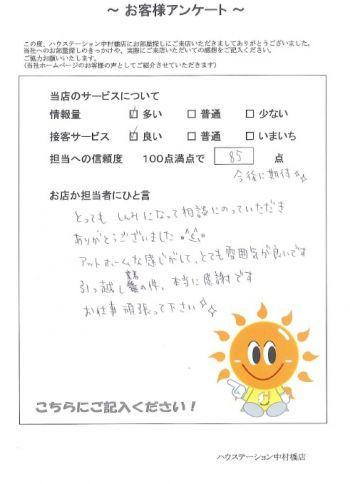 ～ お客様アンケート ～
この度、ハウステーション中村橋店にお部屋探しにご来店いただきましてありがとうございました。
当社へのお部屋探しのきっかけや、実際にご来店いただいての感想をご記入ください。
ご協力お願いいたします。
(当社ホームページのお客様の声としてご紹介させていただきます)
当店のサービスについて
情報量 ☑ 多い □ 普通 □ 少ない
接客サービス ☑ 良い □ 普通 □ いまいち
担当への信頼度 100点満点で 85 点
今後に期待
お店か担当者にひと言
とっても しんみになって相談にのっていただき
ありがとうございました
アットホームな感じがして、とても雰囲気が良いです
引っ越し の件、本当に感謝です
お仕事 頑張って下さい
こちらにご記入ください!
ハウステーション中村橋店